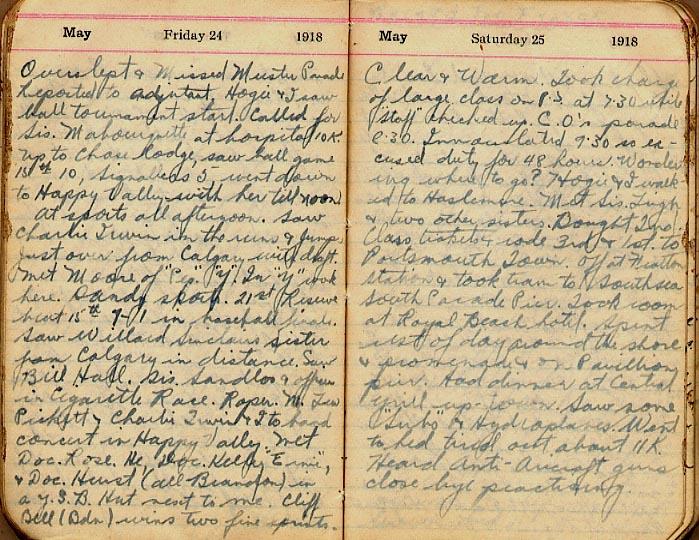 May Friday 24 1918
Overslept & Missed Muster Parade
Reported to adjutant. Hogie & I saw
ball tournament start. Called for
Sis. at hospital 10 K.
up to Chase Lodge, saw ball game
15th 10, Signallers 5 - went down
to Happy Valley with her till noon
at sports all afternoon. Saw
Charlie Irwin in the runs & jumps
just over from Calgary with draft.
Met Moore of "Y". In "Y" work
here. Dandy sport. 21st Reserve
beat 15th 7-1 in baseball finals.
Saw Willard Sinclairs sister
from Calgary in distance. Saw
Bill Hall. Sis. & officer
in Cigarette Race. Roper. M.
Pickett & Charlie Irwin & I to band
concert in Happy Valley. Met
Doc. Rose. He, Doc. Kelly
& Doc. Hurst (all Brandon) in
a Hut next to me. Cliff
Bell (Bdn) wins two fine sprints.
May Saturday 25 1918
Clear & Warm. Took charge
of large class on P.T. at 7.30 while
"staff" checked up. C.O's parade
8.30. Innoculated 9.30 so ex-
cused duty for 48 hours. Wonder-
ing where to go? Hogie & I walk-
ed to Haslemere. Met Sis.
& two other sisters. Bought 2nd
Class tickets & rode 3rd & 1st. to
Portsmouth Town. Off at Fratton
station & took tram to Southsea
South Parade Pier. Took room
at Royal Beach hotel. Spent
rest of day around the shore
& promenade & on Pavillion
pier. Had dinner at Central
Grill up-town. Saw some
"Subs" & Hydroplanes. Went
to bed tired out about 11 K.
Heard Anti-Aircraft guns
close bye practising.